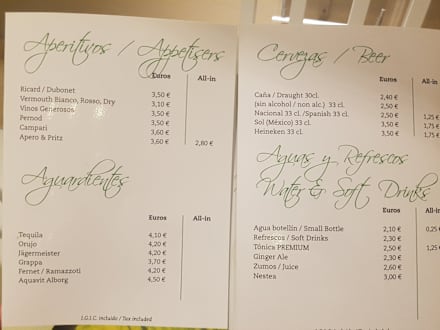 Aperitivos / Appetisers
Euros All-in
Ricard / Dubonet 3,50 €
Vermouth Bianco, Rosso, Dry 3,10 €
Vinos Generosos 3,50 €
Pernod 3,50 €
Campari 3,60 €
Apero & Pritz 3,60 € 2,80 €
Aguardientes
Euros All-in
Tequila 4,10 €
Orujo 4,20 €
Jägermeister 4,20 €
Grappa 3,70 €
Fernet / Ramazzoti 4,10 €
Aquavit Alborg 4,50 €
I.G.I.C. incluido / Tax included
Cervezas / Beer
Euros All-in
Caña / Draught 30cl. 2,40 €
(sin alcohol / non alc.) 33 cl. 2,50 €
Nacional 33 cl. /Spanish 33 cl. 2,50 € 1,25 €
Sol (México) 33 cl. 3,50 € 1,75 €
Heineken 33 cl. 3,50 € 1,75 €
Aguas y Refrescos
Water & Soft Drinks
Euros All-in
Agua botellín / Small Bottle 2,10 € 0,25 €
Refrescos / Soft Drinks 2,30 €
Tónica PREMIUM 2,50 € 1,25 €
Ginger Ale 2,30 €
Zumos / Juice 2,60 €
Nestea 3,00 €